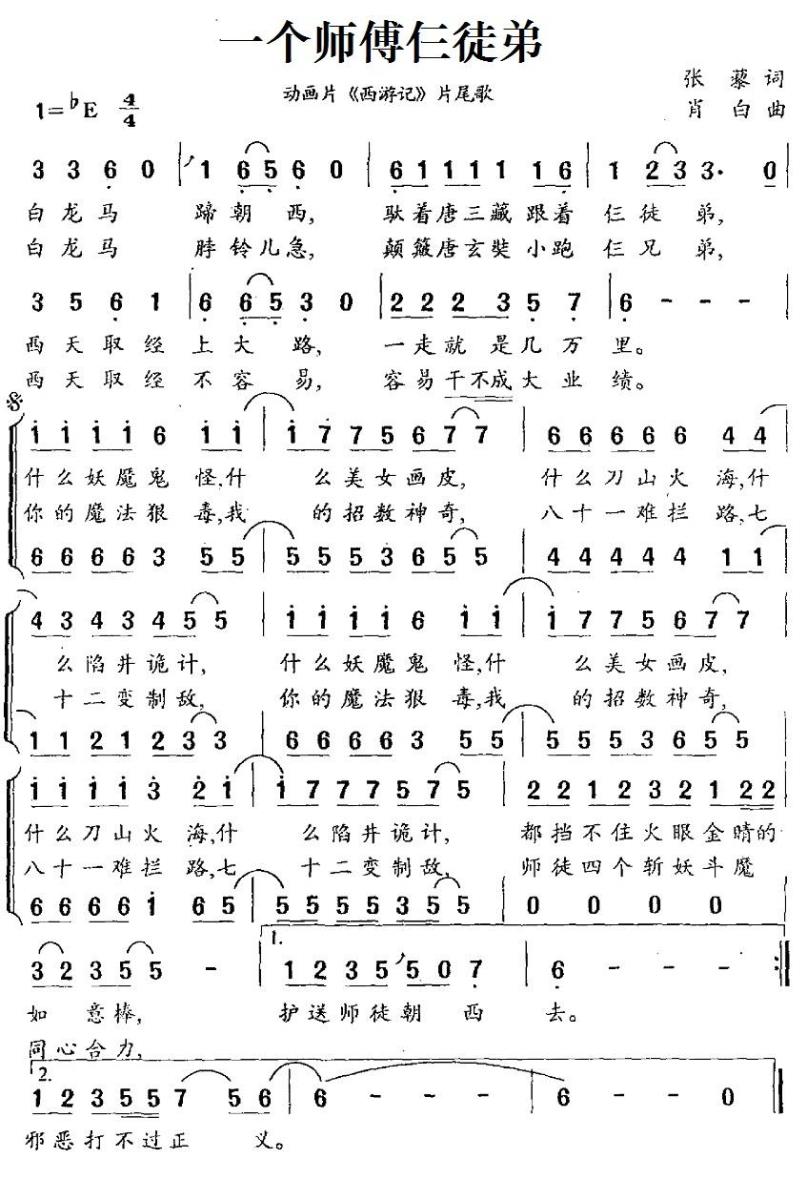 一个师傅仨徒弟
动画片《西游记》片尾歌
张藜词
肖白曲
1=♭E 4/4
3 3 6 0 | 1 6 5 6 0 | 6 1 1 1 1 1 6 | 1 2 3 3· 0 |
白龙马 蹄朝西, 驮着唐三藏跟着 仨徒弟,
白龙马 脖铃儿急, 颠簸唐玄奘小跑 仨兄弟,
3 5 6 1 | 6 6 5 3 0 | 2 2 2 2 3 5 7 | 6 - - - |
西天取经 上大路, 一走就是几万里。
西天取经 不容易, 容易干不成大业绩。
1 1 1 1 6 1 1 | 1 7 7 5 6 7 7 | 6 6 6 6 6 4 4 |
什么妖魔鬼 怪,什 么美女画皮, 什么刀山火 海,什
你的魔法狠 毒,我 的招数神奇, 八十一难拦 路,七
6 6 6 6 3 5 5 | 5 5 5 3 6 5 5 | 4 4 4 4 4 1 1 |
4 3 4 3 4 5 5 | 1 1 1 1 6 1 1 | 1 7 7 5 6 7 7 |
么陷井诡计, 什么妖魔鬼 怪,什 么美女画皮,
十二变制敌, 你的魔法狠 毒,我 的招数神奇,
1 1 2 1 2 3 3 | 6 6 6 6 3 5 5 | 5 5 5 3 6 5 5 |
1 1 1 1 3 2 1 | 1 7 7 7 7 5 7 5 | 2 2 1 2 3 2 1 2 2 |
什么刀山火 海,什 么陷井诡计, 都挡不住火眼金睛的
八十一难拦 路,七 十二变制敌, 师徒四个斩妖斗魔
6 6 6 6 1 6 5 | 5 5 5 5 3 5 5 | 0 0 0 0 |
1.
3 2 3 5 5 - | 1 2 3 5 5 0 7 | 6 - - - :|
如意棒, 护送师徒朝西去。
同心合力,
2.
1 2 3 5 5 7 5 6 | 6 - - - | 6 - - 0 ‖
邪恶打不过正义。